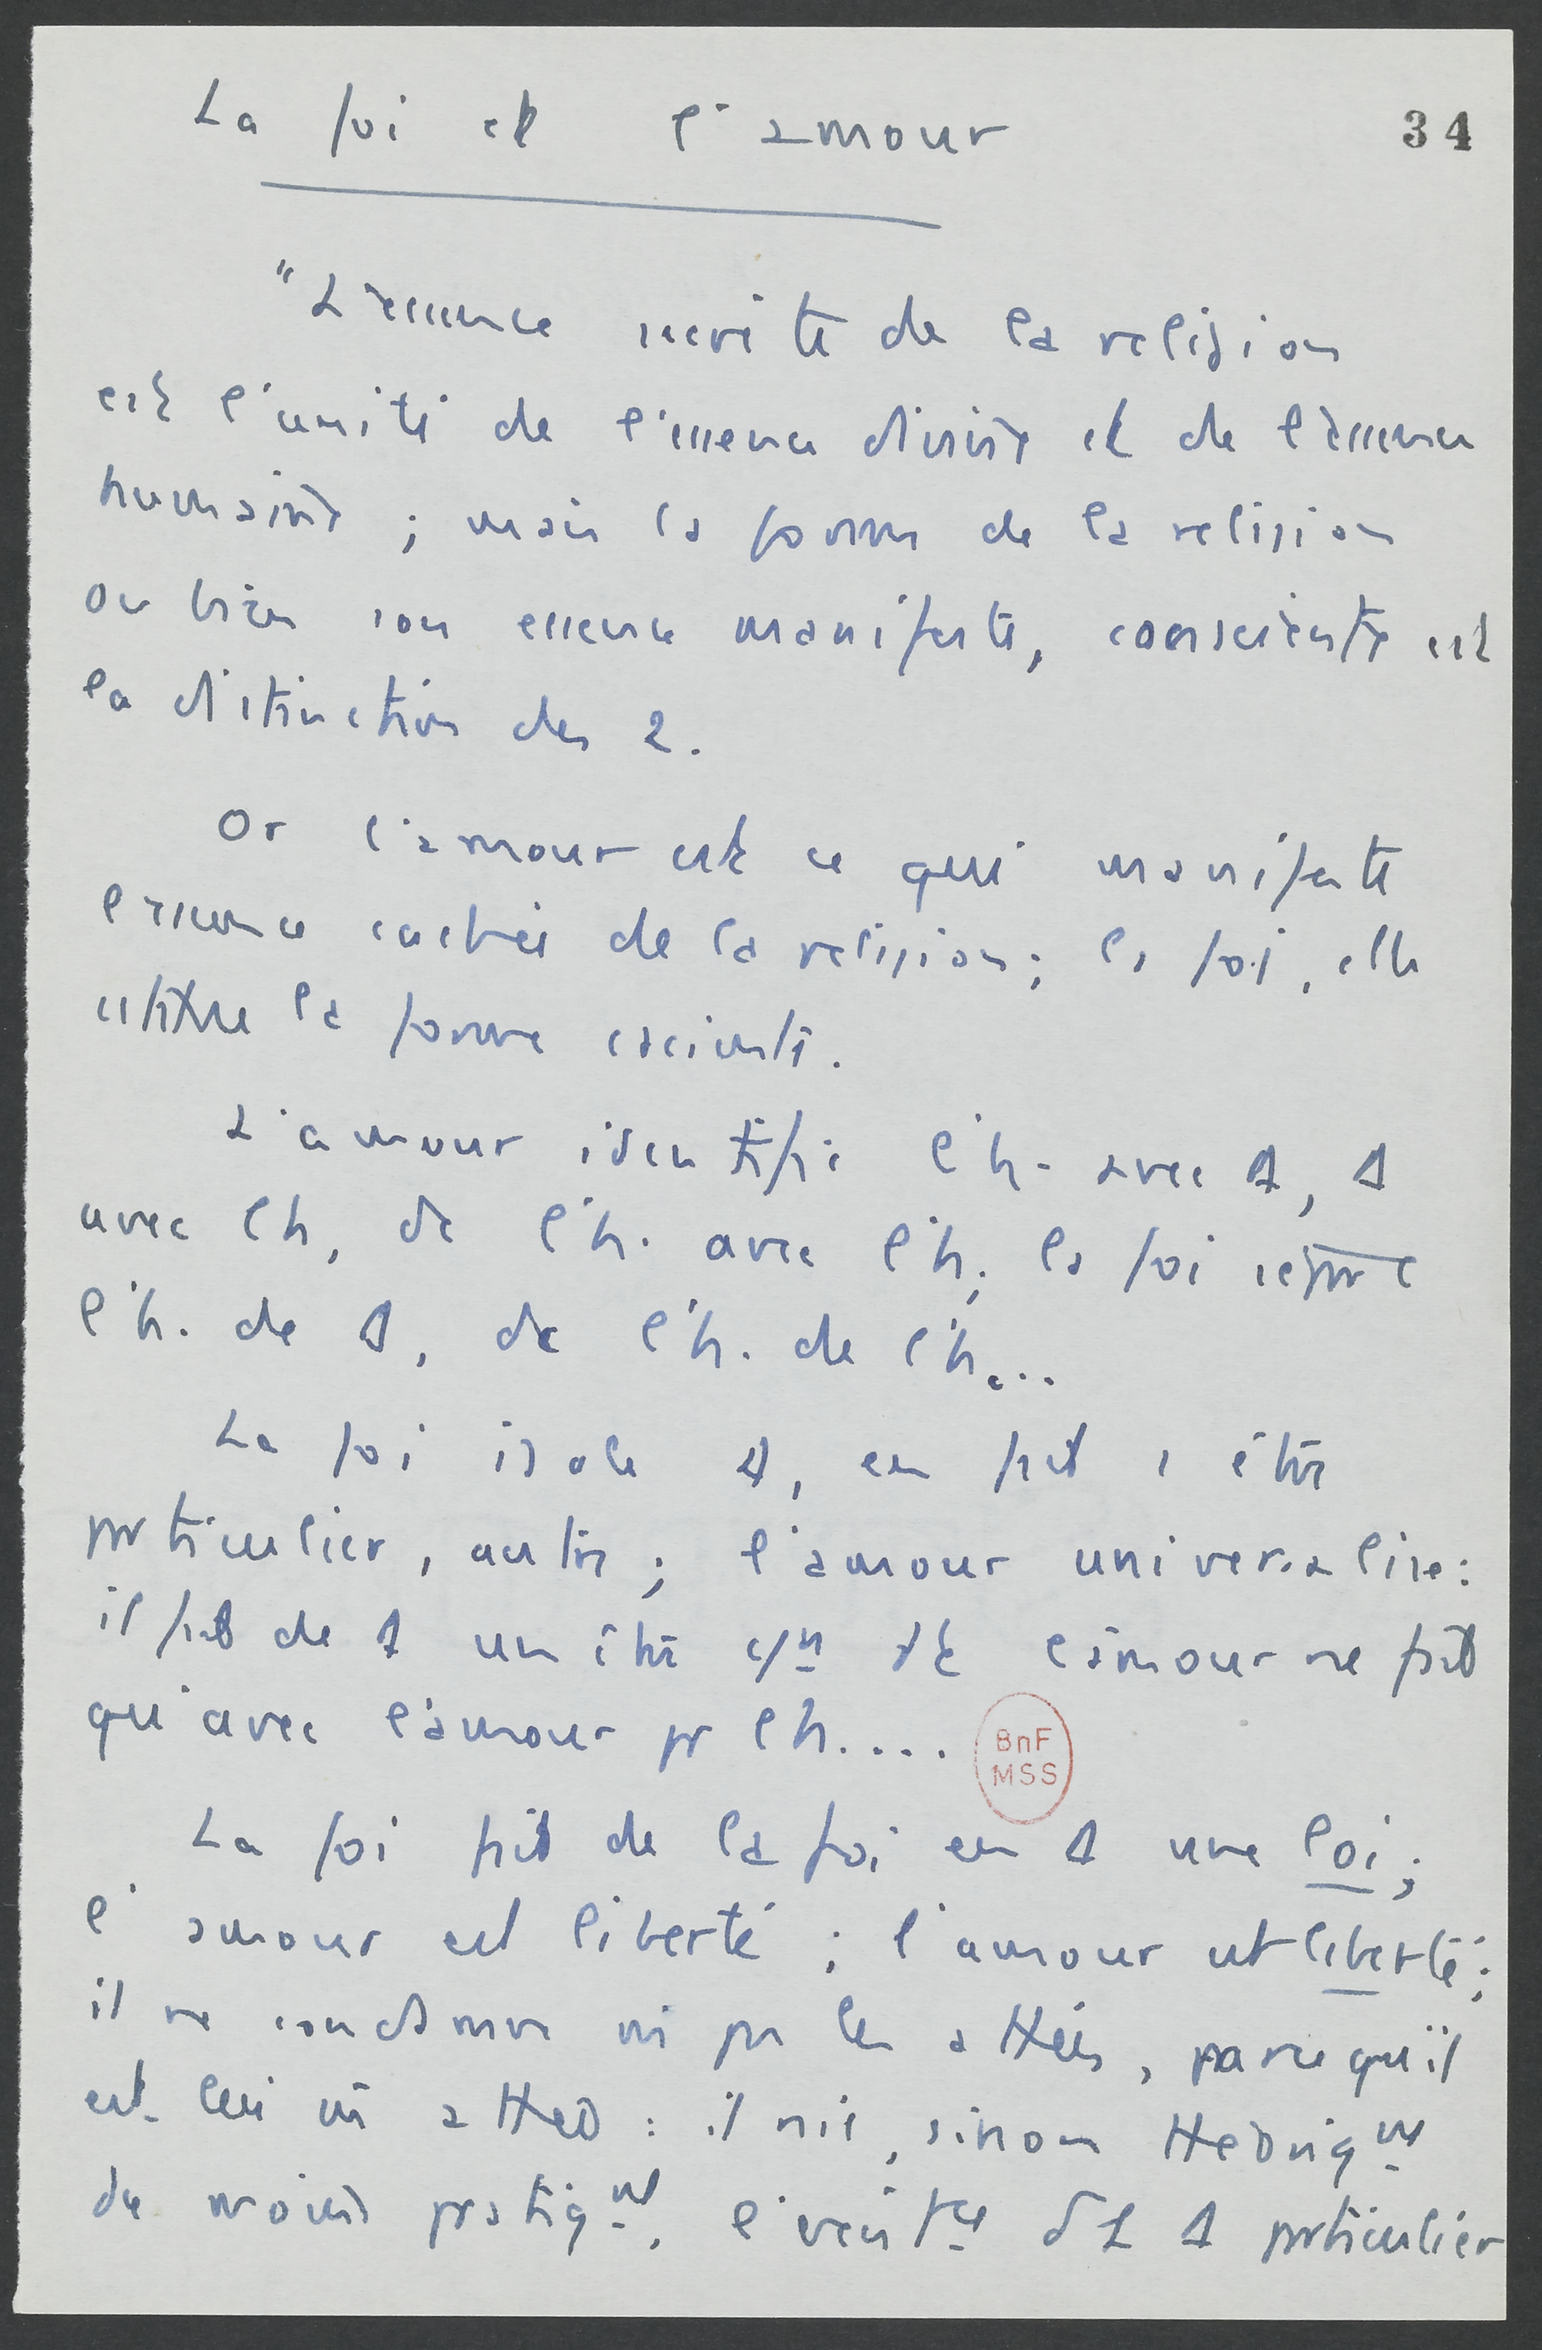 La foi et l'amour
34
"L'essence secrète de la religion
est l'unité de l'essence divine et de l'essence
humaine ; mais la forme de la religion
ou bien son essence manifeste, consciente est
la distinction des 2.
Or l'amour est ce qui manifeste
l'essence cachée de la religion ; la foi, elle
constitue la forme csciente.
L'amour identifie l'h. avec D, D
avec l'h, dc l'h. avec l'h ; la foi sépare
l'h. de D, dc l'h. de l'h...
La foi isole D, en fait 1 être
prticulier, autre ; l'amour universalise :
il fait de D un être cn dt l'amour ne fait
qu'avec l'amour pr l'h....
BnF
MSS
La foi fait de la foi en D une loi ;
l'amour est liberté ; l'amour est liberté ;
il ne condamne m pas les athées, parce qu'il
est lui m athée : il nie, sinon théoriqmt
du moins pratiqmt, l'existce d'1 D prticulier